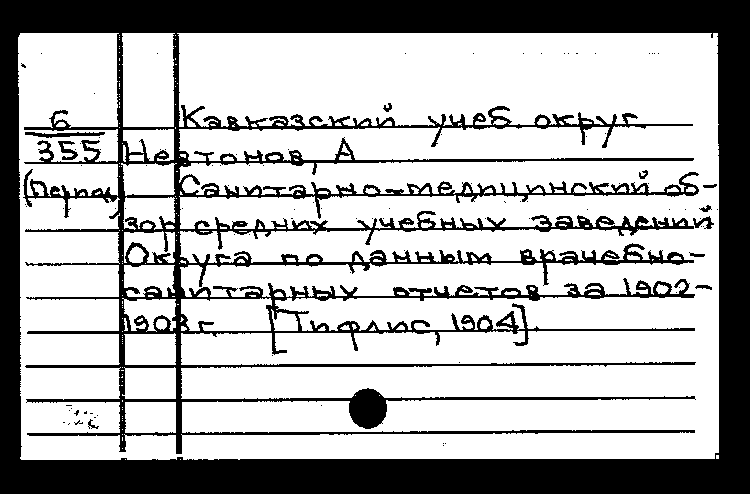 Кавказский учеб. округ.
б
355
(Период.)
Невтонов, А
Санитарно-медицинский об-
зор средних учебных заведений
Округа по данным врачебно-
санитарных отчетов за 1902-
1903 г. [Тифлис, 1904].